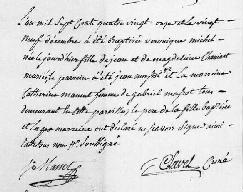 L'an mil sept cent quatre vingt onze et le vingt
neuf décembre a été baptisée veronique michel
née le jour d'hier fille de jean et de magdeleine Clement
mariés parrein a été jean et la marreine
Catherine femme de gabriel tous
demeurant sur cette paroisse le pere de la fille baptisée
et la marreine ont déclaré ne savoir signer
soussigné
Clavel Curé